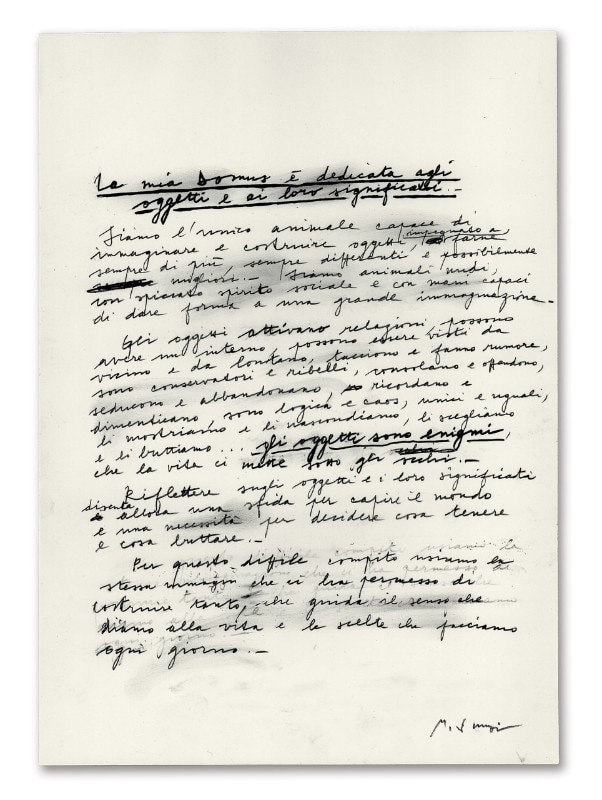 La mia Domus è dedicata agli
oggetti e ai loro significati.-
Siamo l'unico animale capace di
immaginare e costruire oggetti, impegnato a farne
sempre di più, sempre differenti e possibilmente
migliori.- Siamo animali nudi,
con spiccato spirito sociale e con mani capaci
di dare forma a una grande immaginazione.-
Gli oggetti attivano relazioni, possono
avere un interno, possono essere visti da
vicino e da lontano, tacciono e fanno rumore,
sono conservatori e ribelli, consolano e offendono,
seducono e abbandonano, ricordano e
dimenticano, sono logica e caos, unici e uguali,
li mostriamo e li nascondiamo, li scegliamo
e li buttiamo... gli oggetti sono enigmi,
che la vita ci mette sotto gli occhi.-
Riflettere sugli oggetti e i loro significati
diventa allora una sfida per capire il mondo
e una necessità per decidere cosa tenere
e cosa buttare.-
Per questo difficile compito usiamo la
stessa immagin che ci ha permesso di
costruire tanto, che guida il senso che
diamo alla vita e le scelte che facciamo
ogni giorno.-